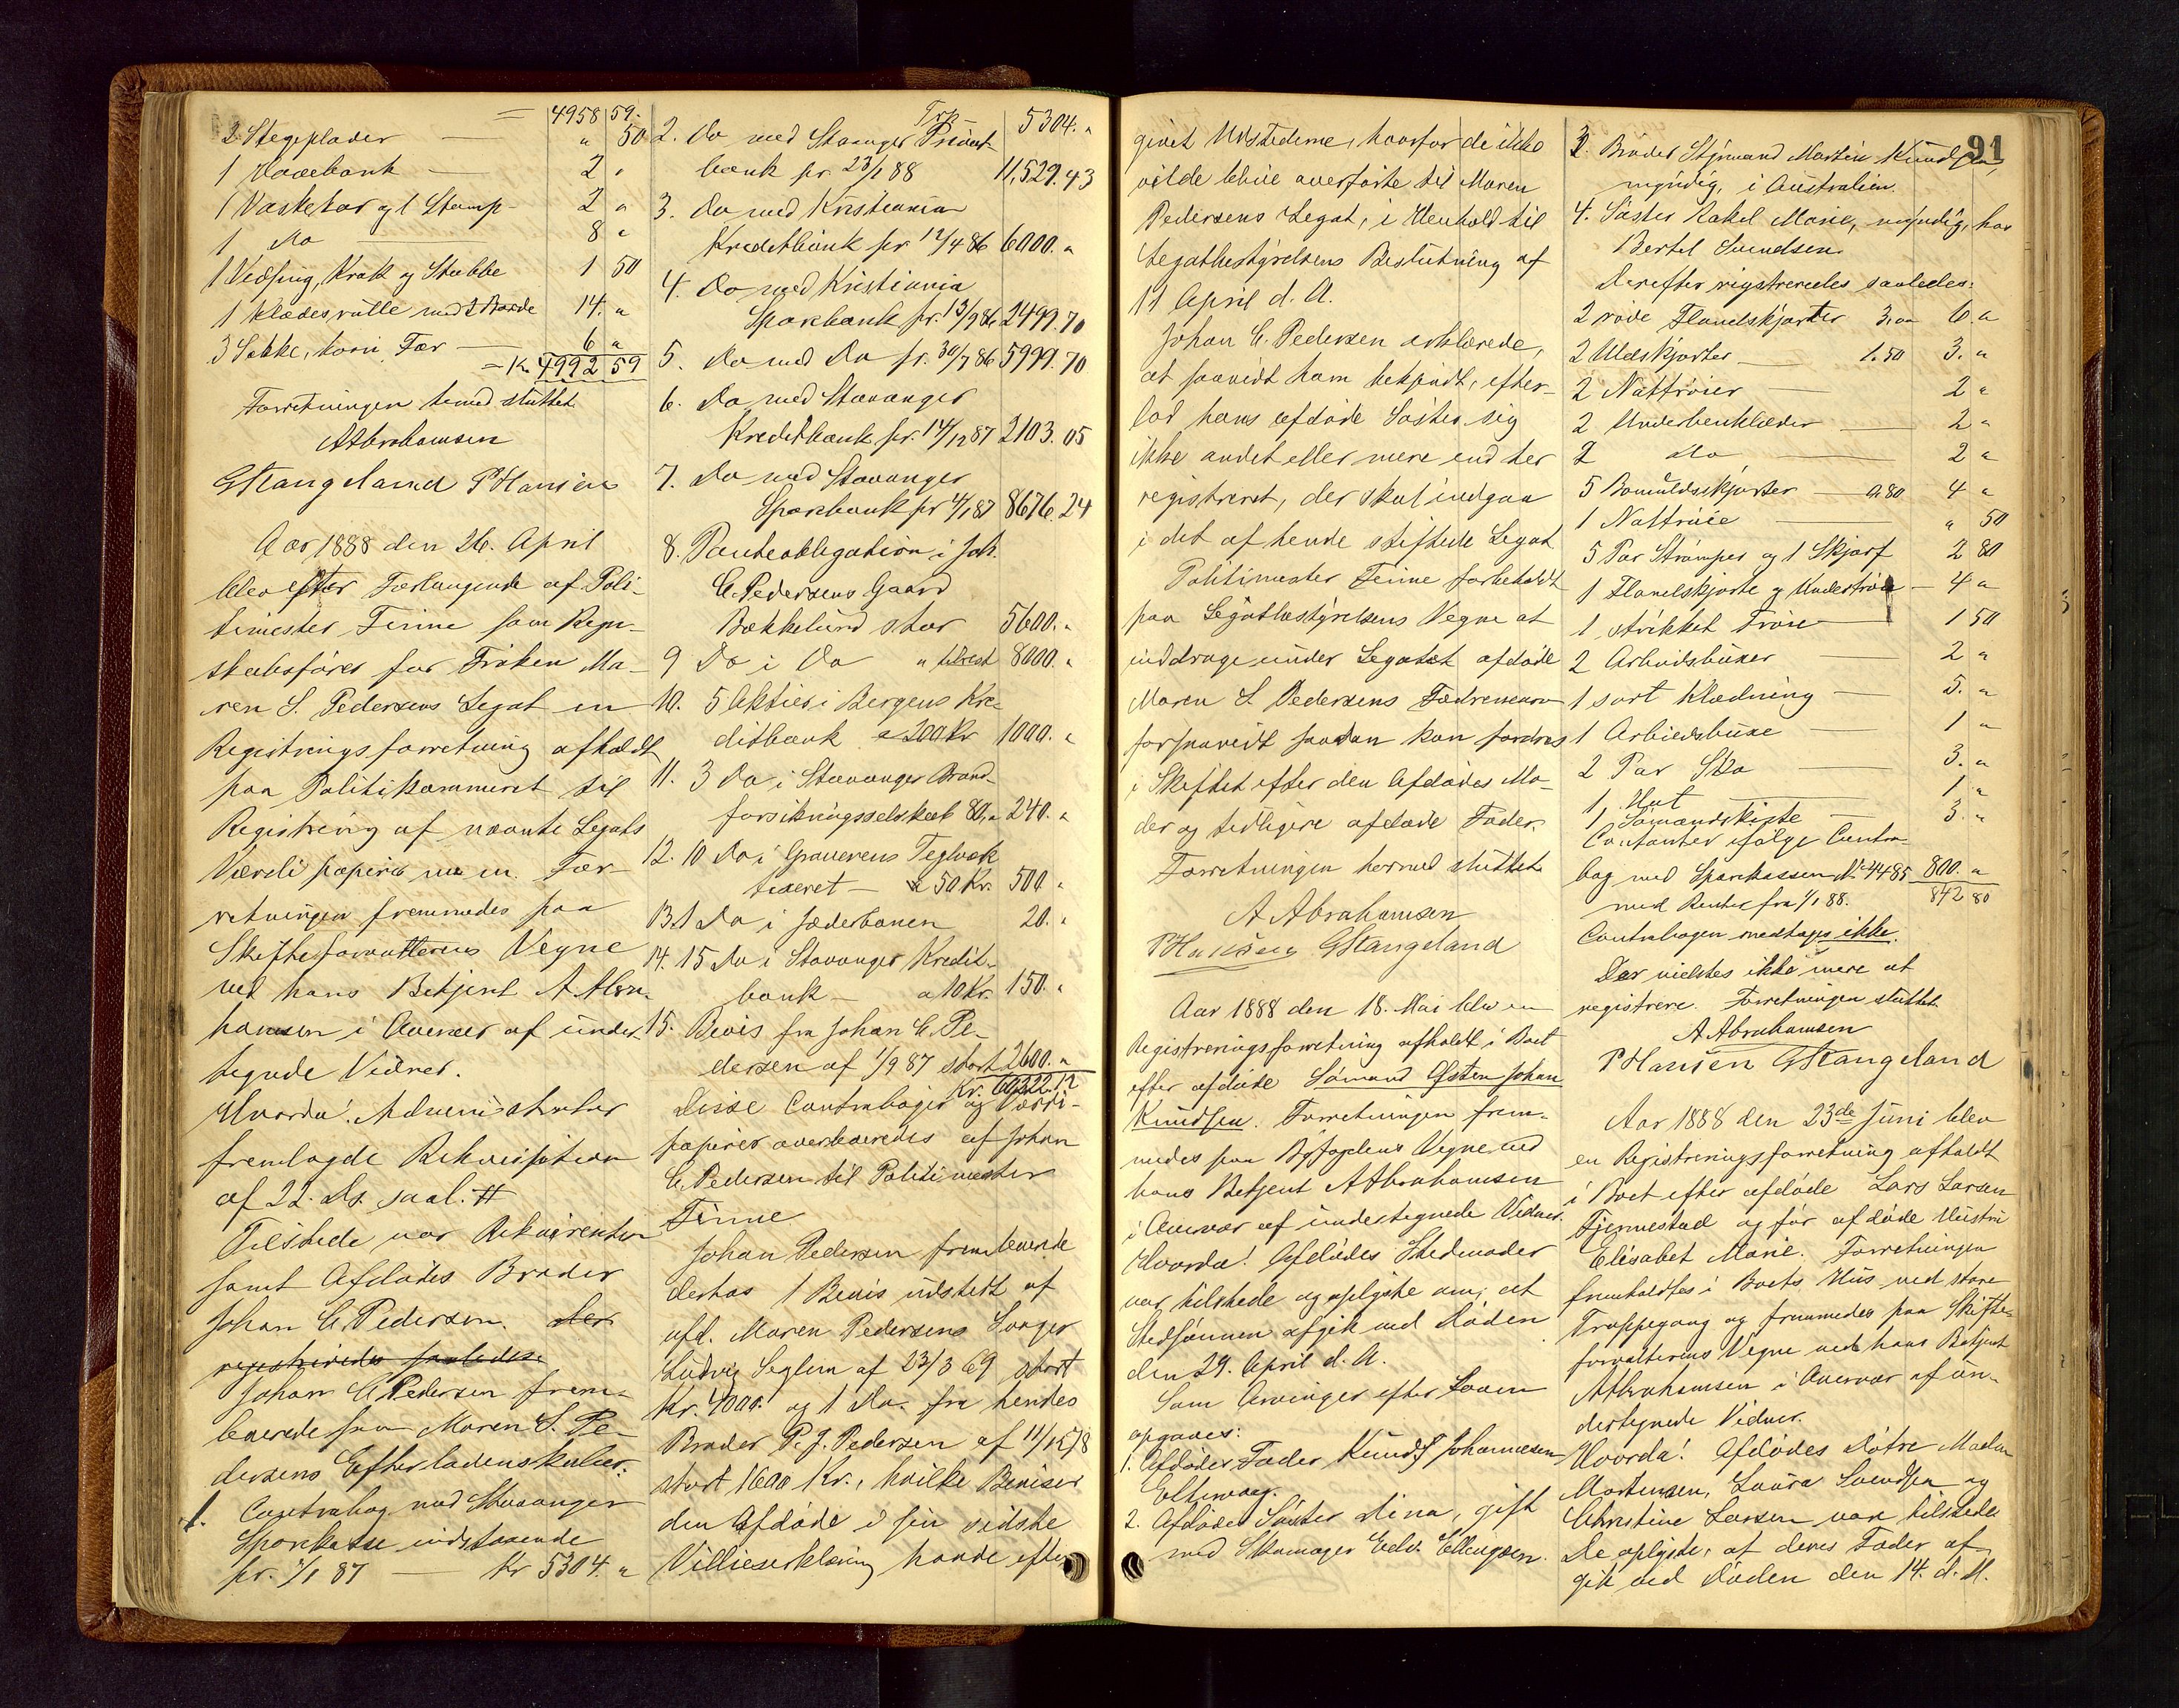 = 4958 59.
2 Stegeplader — " 50
1 — 2 "
1 Vaskekar og 1 Stamp — 2 "
1 Do — 8 "
1 Vedsag, Krak og Stabbe 1 50
1 Klædesrulle med 2 Borde 14. "
3 Sække, hvori Fær — 6 "
= Kr. 4992 59
Forretningen hermed sluttet
AAbrahamsen
GStangeland PHansen
Aar 1888 den 26. April
blev efter Forlangende af Poli-
timester Finne som Regn-
skabsfører for Frøken Ma-
ren S. Pedersens Legat en
Registreringsforretning afholdt
paa Politikammeret til
Registrering af nævnte Legats
Værdipapirer m. m. For-
retningen fremmedes paa
Skifteforvalterens Vegne
ved hans Betjent A Abra-
hamsen i Overvær af under-
tegnede Vidner.
Hvorda! Administrator
fremlagde Rekvisition
af 22. Ds. saal. #
Tilstede var Rekvirenten
samt Afdødes Broder
Johan C. Pedersen. Der
registreredes saaledes:
Johan C Pedersen frem-
leverede fra Maren S. Pe-
dersens Efterladenskaber:
1. Contrabog med Stavanger
Sparekasse indstaaende
pr. 1/1 87 — Kr 5304. "
Trp 5304. "
2. Do med Stavanger Privat-
bank pr 23/1 88 11,529.43
3. Do med Kristiania
Kreditbank pr 12/4 86 6000. "
4. Do med Kristiania
Sparbank pr. 13/9 86 2499.70
5. Do med Do pr. 30/7 86 5999.70
6. Do med Stavanger
Kreditbank pr. 14/12 87 2103.05
7. Do med Stavanger
Sparebank pr 4/1 87 8676.24
8. Panteobligation i Joh.
C. Pedersens Gaard
Bækkelund stor 5600. "
9 Do i Do " 8000. "
10. 5 Aktier i Bergens Kre-
ditbank a 200 Kr 1000. "
11. 3 Do i Stavanger Brand-
forsikringsselskab 80," 240. "
12. 10 Do i Graverens Teglværk
— a 50 Kr. 500 "
13. 1 Do i Jæderbanen 20. "
14. 15 Do i Stavanger Kredit-
bank — a 10 Kr. 150. "
15. Bevis fra Johan C. Pe-
dersen af 1/9 87 stort 2600. "
Kr. 60,222.12
Disse Contrabøger og Værdi-
papirer overleveredes af Johan
C. Pedersen til Politimester
Finne
Johan Pedersen fremleverede
derhos 1 Bevis udstedt af
afd. Maren Pedersens Svoger
Ludvig Seglem af 23/3 69 stort
Kr. 4000. og 1 Do. fra hendes
Broder P. J. Pedersen af 11/12 78
stort 1600 Kr., hvilke Beviser
den Afdøde i sin sidste
Villieserklæring havde efter-
91
givet Udstederne, hvorfor de ikke
vilde blive overførte til Maren
Pedersens Legat, i Henhold til
Legatbestyrelsens Beslutning af
11 April d. A.
Johan C. Pedersen erklærede,
at saavidt ham bekjendt, efter-
lod hans afdøde Søster sig
ikke andet eller mere end her
registreret, der skal indgaa
i det af hende stiftede Legat
Politimester Finne forbeholdt
paa Legatbestyrelsens Vegne at
inddrage under Legatet afdøde
Maren S. Pedersens Fædrenearv
forsaavidt saadan kan fordres
i Skiftet efter den Afdødes Mo-
der og tidligere afdøde Fader.
Forretningen hermed sluttet
A Abrahamsen
PHansen GStangeland
Aar 1888 den 18. Mai blev en
Registreringsforretning afholdt i Boet
efter afdøde Sømand Osten Johan
Knudsen. Forretningen frem-
medes paa Byfogdens Vegne ved
hans Betjent AAbrahamsen
i Overvær af undertegnede Vidner.
Hvorda! Afdødes Stedmoder
var tilstede og oplyste om, at
Stedsønnen afgik ved Døden
den 29. April d. A.
Som Arvinger efter Loven
opgaves:
1. Afdødes Fader Knud Johannesen
2. Afdødes Søster Dina, gift
med Skomager Edv. Ellingsen.
3. Broder Styrmand Martin Knudsen,
myndig, i Australien.
4. Søster Rakel Marie, myndig, hos
Bertel Svendsen
Derefter registreredes saaledes:
2 røde Flanelskjorter 3," 6. "
2 Uldskjorter — 1.50 3. "
2 Nattrøier 2 "
2 Underbenklæder — 2 "
2 Do — 2 "
5 Bomuldsskjorter — 0.80 4 "
1 Nattrøie — " 50
5 Par Strømper og 1 Skjærf 2 80
1 Flanelskjorte og Undertrøie — 4 "
1 strikket Trøie — 1 50
2 Arbeidsbuxer — 2 "
1 sort Klædning — 5. "
1 Arbeidsbuxe — 1 "
2 Par Sko — 3. "
1 Hat — 1 "
1 Sømandskiste — 3. "
Contanter ifølge Contra-
bog med Sparekassen No 4485 800. "
med Renter fra 1/1 88. 842 80
Contrabogen medtages ikke.
Der vidstes ikke mere at
registrere. Forretningen sluttet.
A Abrahamsen
PHansen GStangeland
Aar 1888 den 23de Juni blev
en Registreringsforretning afholdt
i Boet efter afdøde Lars Larsen
Tjennestad og før afdøde Hustru
Elisabet Marie. Forretningen
fremholdtes i Boets Hus ved store
Trappegang og fremmedes paa Skifte-
forvalterens Vegne ved hans Betjent
AAbrahamsen i Overvær af un-
dertegnede Vidner.
Hvorda! Afdødes Døtre Madam
Mortensen, Laura Svendsen og
Christine Larsen var tilstede
De oplyste, at deres Fader af-
gik ved Døden den 14. d. M.